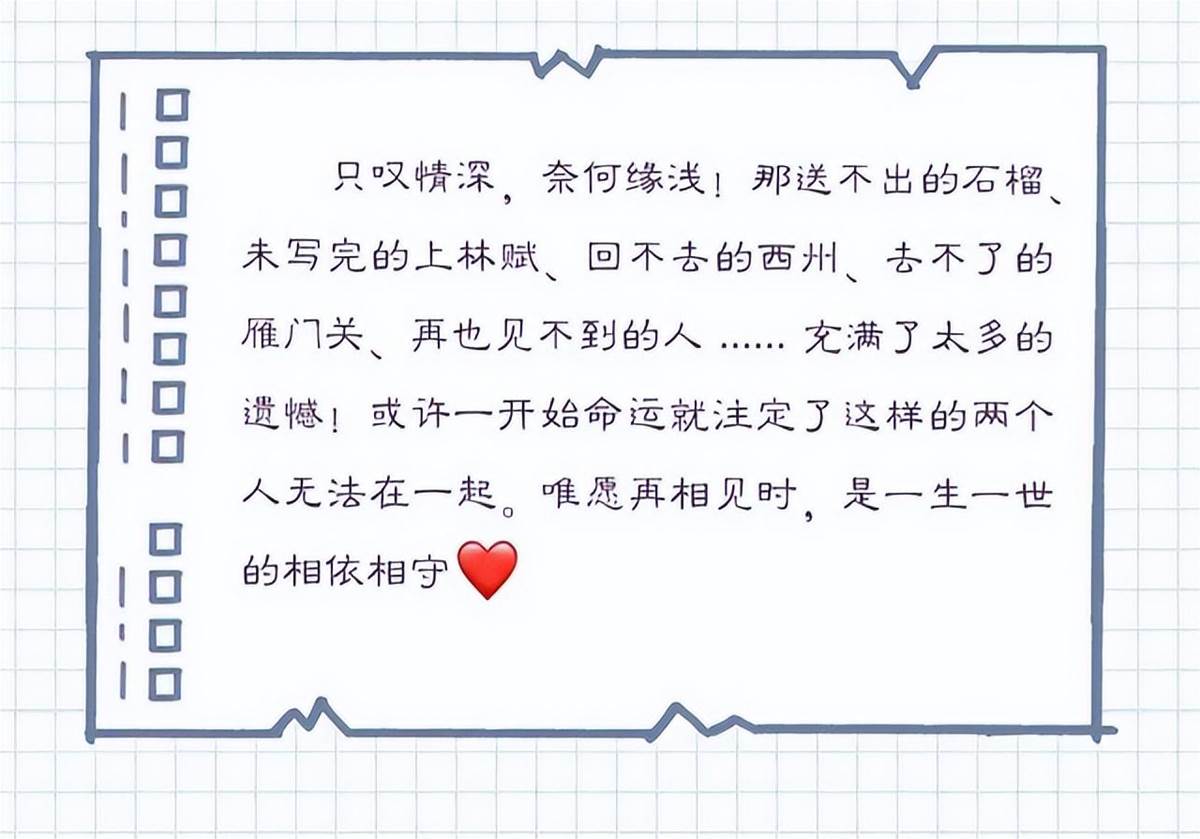 只叹情深，奈何缘浅！那送不出的石榴、
未写完的上林赋、回不去的西州、去不了的
雁门关、再也见不到的人……充满了太多的
遗憾！或许一开始命运就注定了这样的两个
人无法在一起。唯愿再相见时，是一生一世
的相依相守❤️